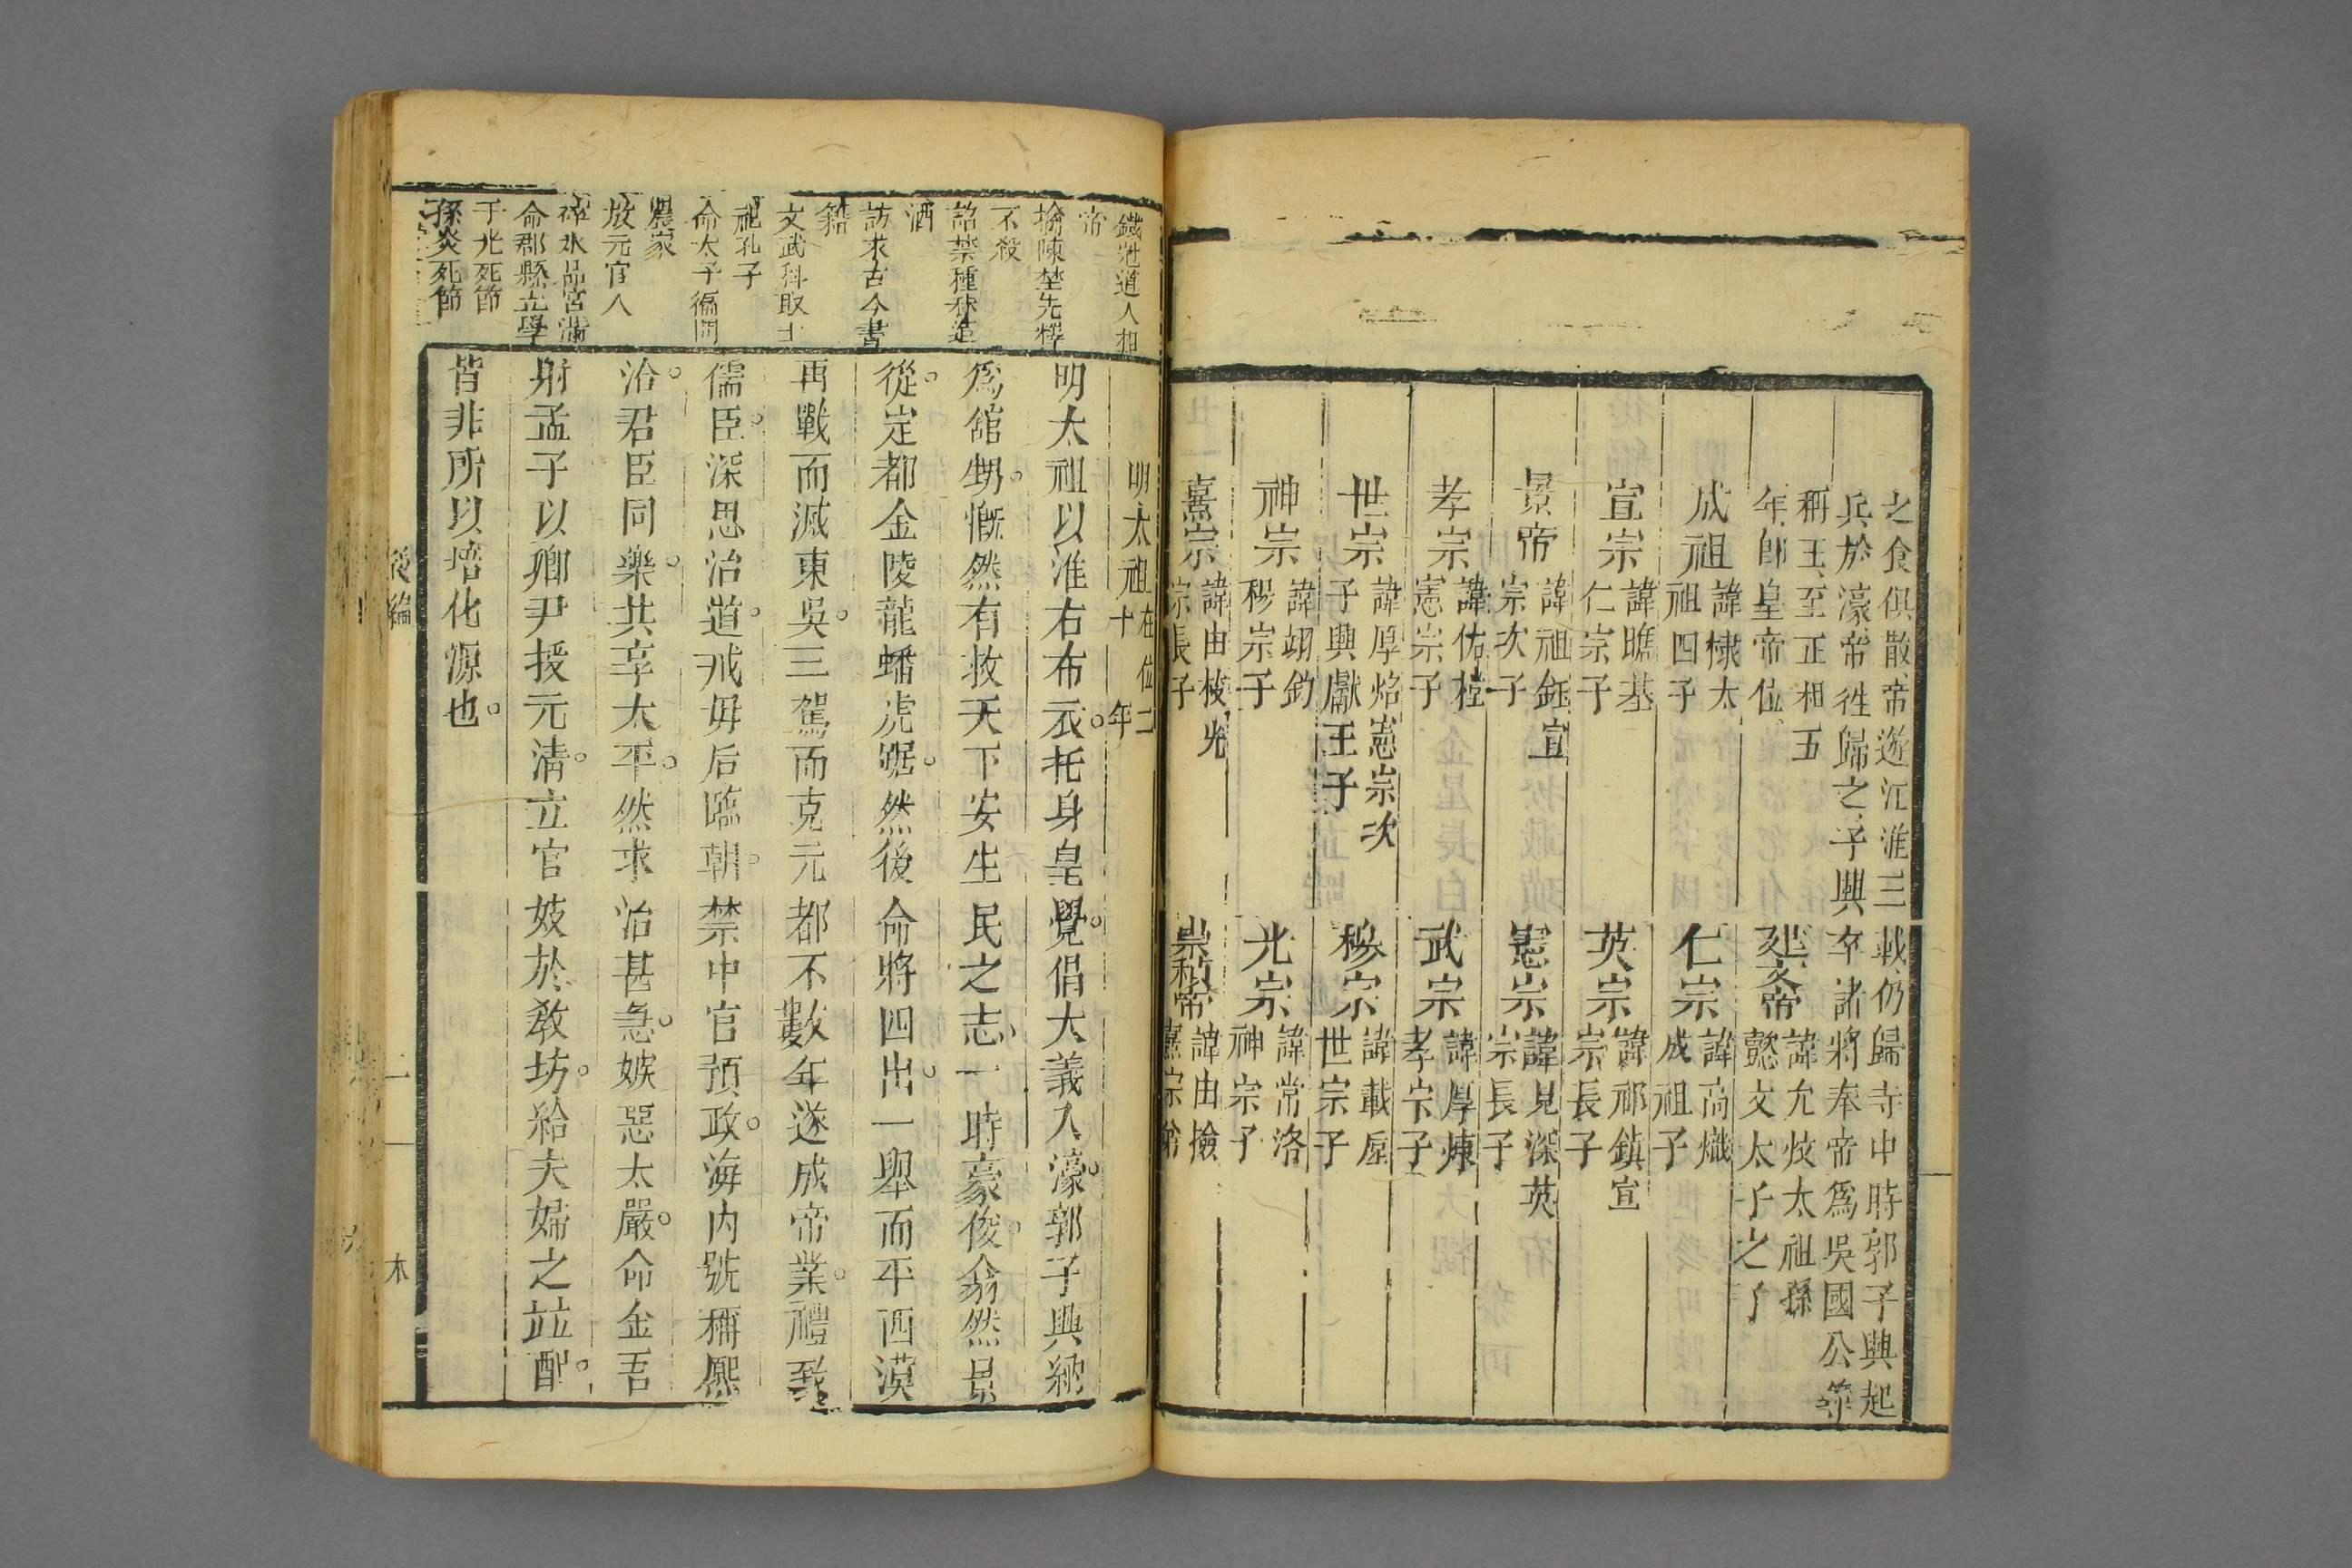 之食俱散帝遊江淮三載仍歸寺中時郭子興起
兵於濠帝徃歸之子興卒諸將奉帝爲吳國公等
稱王至正相五
年卽皇帝位
建文帝 諱允炆太祖孫
懿文太子之子
成祖 諱棣太
祖四子
仁宗 諱高熾
成祖子
宣宗 諱瞻基
仁宗子
英宗 諱祁鎮宣
宗長子
景帝 諱祖鈺宣
宗次子
憲宗 諱見深英
宗長子
孝宗 諱佑樘
憲宗子
武宗 諱厚㷖
孝宗子
世宗 諱厚熖憲宗次
子興獻王子
穆宗 諱載垕
世宗子
神宗 諱翊鈞
穆宗子
光宗 諱常洛
神宗子
熹宗 諱由校光
宗長子
崇禎帝 諱由撿
熹宗弟
鐵冠道人相
帝
擒陳埜先釋
不殺
詔禁種秫造
酒
訪求古今書
籍
文武科取士
祀孔子
命太子徧問
農家
放元宮人
碎水晶宮漏
命郡縣立學
于光死節
孫炎死節
明太祖 在位二
十年
明太祖以淮右布衣。托身皇覺。倡大義入濠。郭子興納
爲舘甥。慨然有救天下安生民之志、一時豪俊。翕然景
從。定都金陵龍蟠虎踞。然後命將四出。一舉而平西漠
再戰而滅東吳。三駕而克元都不數年遂成帝業。禮致
儒臣。深思治道。戒毋后臨朝。禁中官預政。海内號稱熙
洽。君臣同樂。共享太平。然求治甚急。嫉惡太嚴。命金吾
射孟子以卿尹授元淸。立官妓於敎坊。給夫婦之竝配。
皆非所以培化源也。
後編
二
木